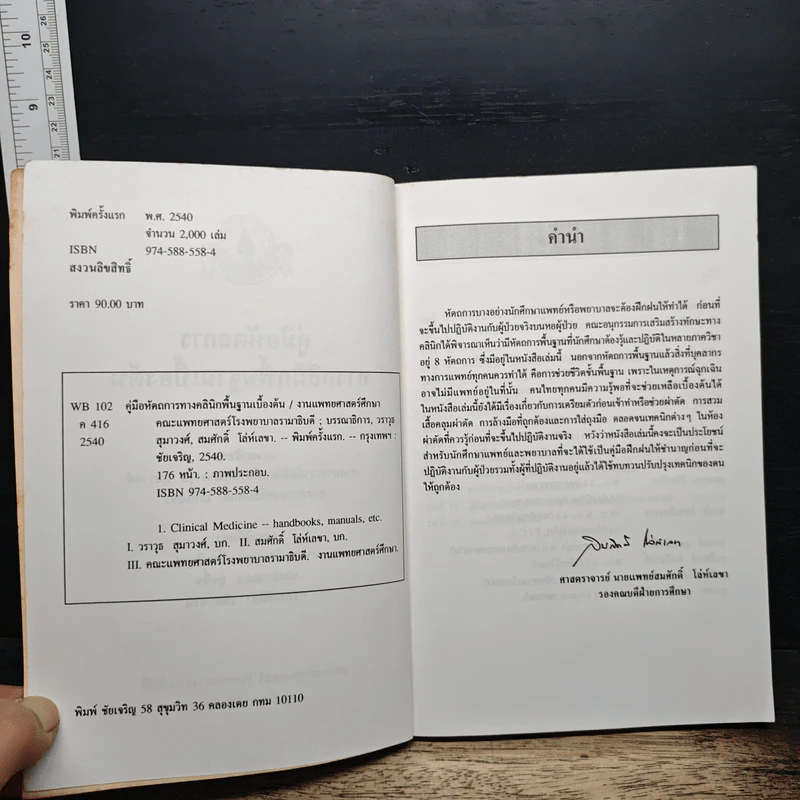 พิมพ์ครั้งแรก พ.ศ. 2540
จำนวน 2,000 เล่ม
ISBN 974-588-558-4
สงวนลิขสิทธิ์
ราคา 90.00 บาท
WB 102 คู่มือหัตถการทางคลินิกพื้นฐานเบื้องต้น / งานแพทยศาสตร์ศึกษา
ค 416 คณะแพทยศาสตร์โรงพยาบาลรามาธิบดี ; บรรณาธิการ, วราวุธ
2540 สุมาวงศ์, สมศักดิ์ โล่ห์เลขา. -- พิมพ์ครั้งแรก. -- กรุงเทพฯ :
ชัยเจริญ, 2540.
176 หน้า. : ภาพประกอบ.
ISBN 974-588-558-4
1. Clinical Medicine -- handbooks, manuals, etc.
I. วราวุธ สุมาวงศ์, บก. II. สมศักดิ์ โล่ห์เลขา, บก.
III. คณะแพทยศาสตร์โรงพยาบาลรามาธิบดี. งานแพทยศาสตร์ศึกษา.
พิมพ์ ชัยเจริญ 58 สุขุมวิท 36 คลองเตย กทม 10110
คำนำ
หัตถการบางอย่างนักศึกษาแพทย์หรือพยาบาลจะต้องฝึกฝนให้ทำได้ ก่อนที่
จะขึ้นไปปฏิบัติงานกับผู้ป่วยจริงบนหอผู้ป่วย คณะอนุกรรมการเสริมสร้างทักษะทาง
คลินิกได้พิจารณาเห็นว่ามีหัตถการพื้นฐานที่นักศึกษาต้องรู้และปฏิบัติในหลายภาควิชา
อยู่ 8 หัตถการ ซึ่งมีอยู่ในหนังสือเล่มนี้ นอกจากหัตถการพื้นฐานแล้วสิ่งที่บุคลากร
ทางการแพทย์ทุกคนควรทำได้ คือการช่วยชีวิตขั้นพื้นฐาน เพราะในเหตุการณ์ฉุกเฉิน
อาจไม่มีแพทย์อยู่ในที่นั้น คนไทยทุกคนมีความรู้พอที่จะช่วยเหลือเบื้องต้นได้
ในหนังสือเล่มนี้ยังได้มีเรื่องเกี่ยวกับการเตรียมตัวก่อนเข้าทำหรือช่วยผ่าตัด การสวม
เสื้อคลุมผ่าตัด การล้างมือที่ถูกต้องและการใส่ถุงมือ ตลอดจนเทคนิคต่างๆ ในห้อง
ผ่าตัดที่ควรรู้ก่อนที่จะขึ้นไปปฏิบัติงานจริง หวังว่าหนังสือเล่มนี้คงจะเป็นประโยชน์
สำหรับนักศึกษาแพทย์และพยาบาลที่จะได้ใช้เป็นคู่มือฝึกให้ชำนาญก่อนที่จะ
ปฏิบัติงานกับผู้ป่วยรวมทั้งผู้ที่ปฏิบัติงานอยู่แล้วได้ใช้ทบทวนปรับปรุงเทคนิกของตน
ให้ถูกต้อง
ศาสตราจารย์ นายแพทย์สมศักดิ์ โล่ห์เลขา
รองคณบดีฝ่ายการศึกษา